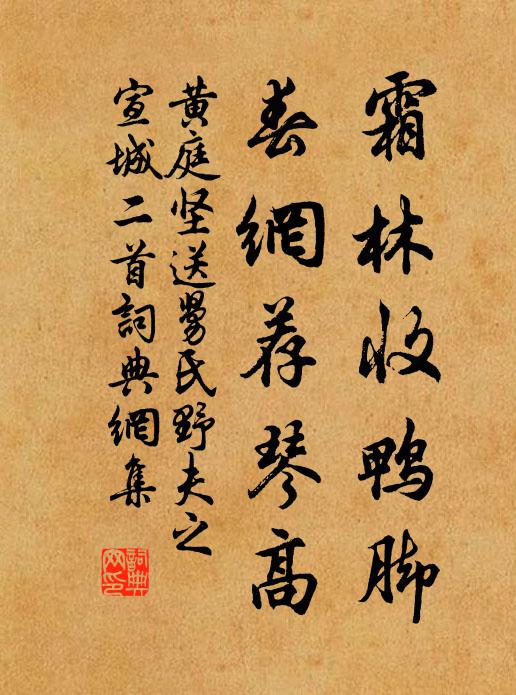 霜林收鸭脚
春網荐琴高
黄庭坚送舅氏野夫之
宣城二首詞典網集
詞典
网印